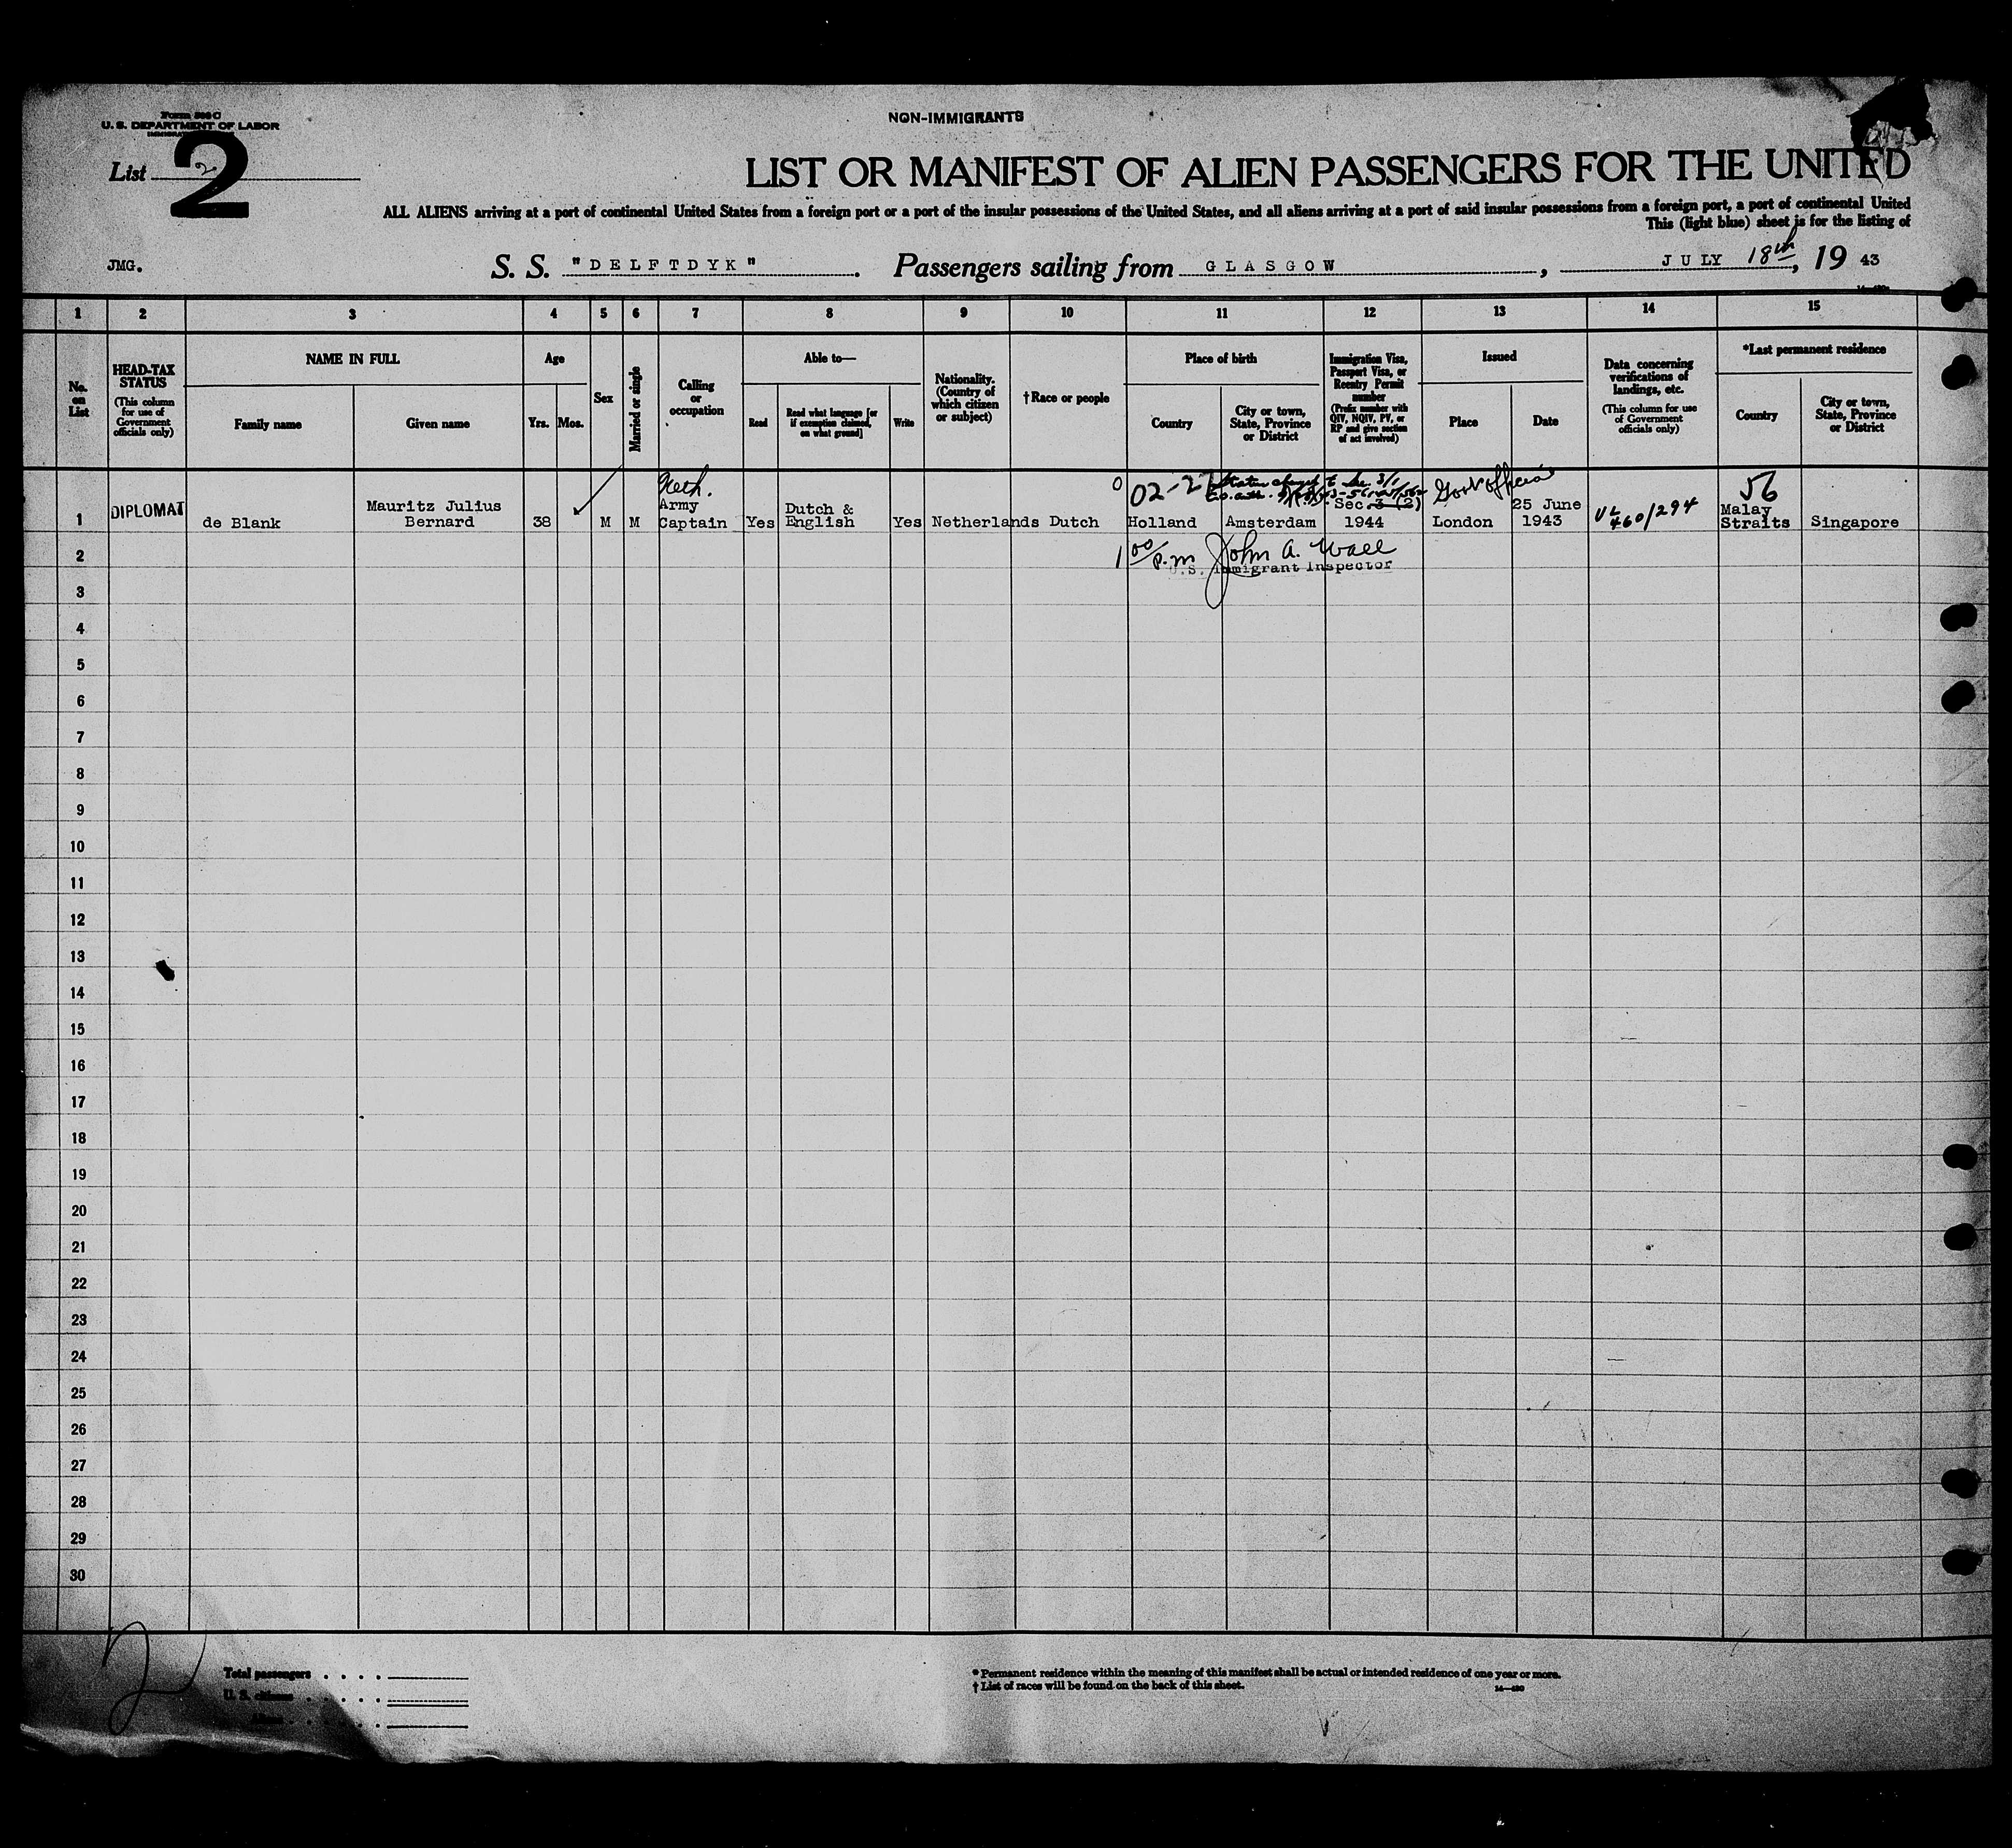 Form 500 C
U. S. DEPARTMENT OF LABOR
NON-IMMIGRANTS
List 2
2
LIST OR MANIFEST OF ALIEN PASSENGERS FOR THE UNITED
ALL ALIENS arriving at a port of continental United States from a foreign port or a port of the insular possessions of the United States, and all aliens arriving at a port of said insular possessions from a foreign port, a port of continental United
This (light blue) sheet is for the listing of
JMG. S. S. "DELFTDYK". Passengers sailing from GLASGOW, JULY 18th, 19 43
1 2 3 4 5 6 7 8 9 10 11 12 13 14 15
No. on List
HEAD-TAX STATUS (This column for use of Government officials only)
NAME IN FULL
Family name
Given name
Age
Yrs. Mos.
Sex
Married or single
Calling or occupation
Able to—
Read
Read what language [or if exemption claimed, on what ground]
Write
Nationality. (Country of which citizen or subject)
†Race or people
Place of birth
Country
City or town, State, Province or District
Immigration Visa, Passport Visa, or Reentry Permit number (Prefix number with QIV, NQIV, PV, or RP and give section of act involved)
Issued
Place
Date
Data concerning verifications of landings, etc. (This column for use of Government officials only)
*Last permanent residence
Country
City or town, State, Province or District
1 DIPLOMAT de Blank Mauritz Julius Bernard 38 M M Neth. Army Captain Yes Dutch & English Yes Netherlands Dutch Holland Amsterdam Sec 3 (2) 1944 London 25 June 1943 460/294 56 Malay Straits Singapore
02-27
Status changed to Sec. 3/1
Gov't official
2 1 00/p.m John A. Wall
U.S. Immigrant Inspector
3
4
5
6
7
8
9
10
11
12
13
14
15
16
17
18
19
20
21
22
23
24
25
26
27
28
29
30
2
Total passengers
U. S. citizens
Aliens
* Permanent residence within the meaning of this manifest shall be actual or intended residence of one year or more.
† List of races will be found on the back of this sheet.